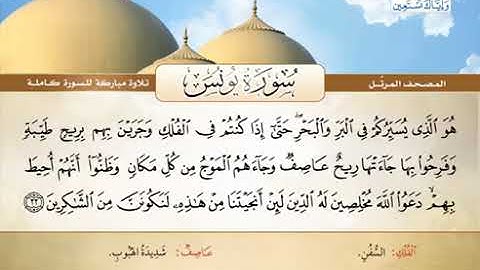 وَإِيَّاكَ نَسْتَعِين
المصحف المرتّل
سُورَةُ يُونُسَ
تلاوة مباركة للسورة كاملة
هُوَ الَّذِي يُسَيِّرُكُمْ فِي الْبَرِّ وَالْبَحْرِ ۖ حَتَّىٰ إِذَا كُنتُمْ فِي الْفُلْكِ وَجَرَيْنَ بِهِم بِرِيحٍ طَيِّبَةٍ
وَفَرِحُوا بِهَا جَاءَتْهَا رِيحٌ عَاصِفٌ وَجَاءَهُمُ الْمَوْجُ مِن كُلِّ مَكَانٍ وَظَنُّوا أَنَّهُمْ أُحِيطَ
بِهِمْ ۙ دَعَوُا اللَّهَ مُخْلِصِينَ لَهُ الدِّينَ لَئِنْ أَنجَيْتَنَا مِنْ هَٰذِهِ لَنَكُونَنَّ مِنَ الشَّاكِرِينَ ﴿٢٢﴾
الفُلْكِ: السُّفُنِ. عَاصِفٌ: شَدِيدَةُ الْهُبُوبِ.